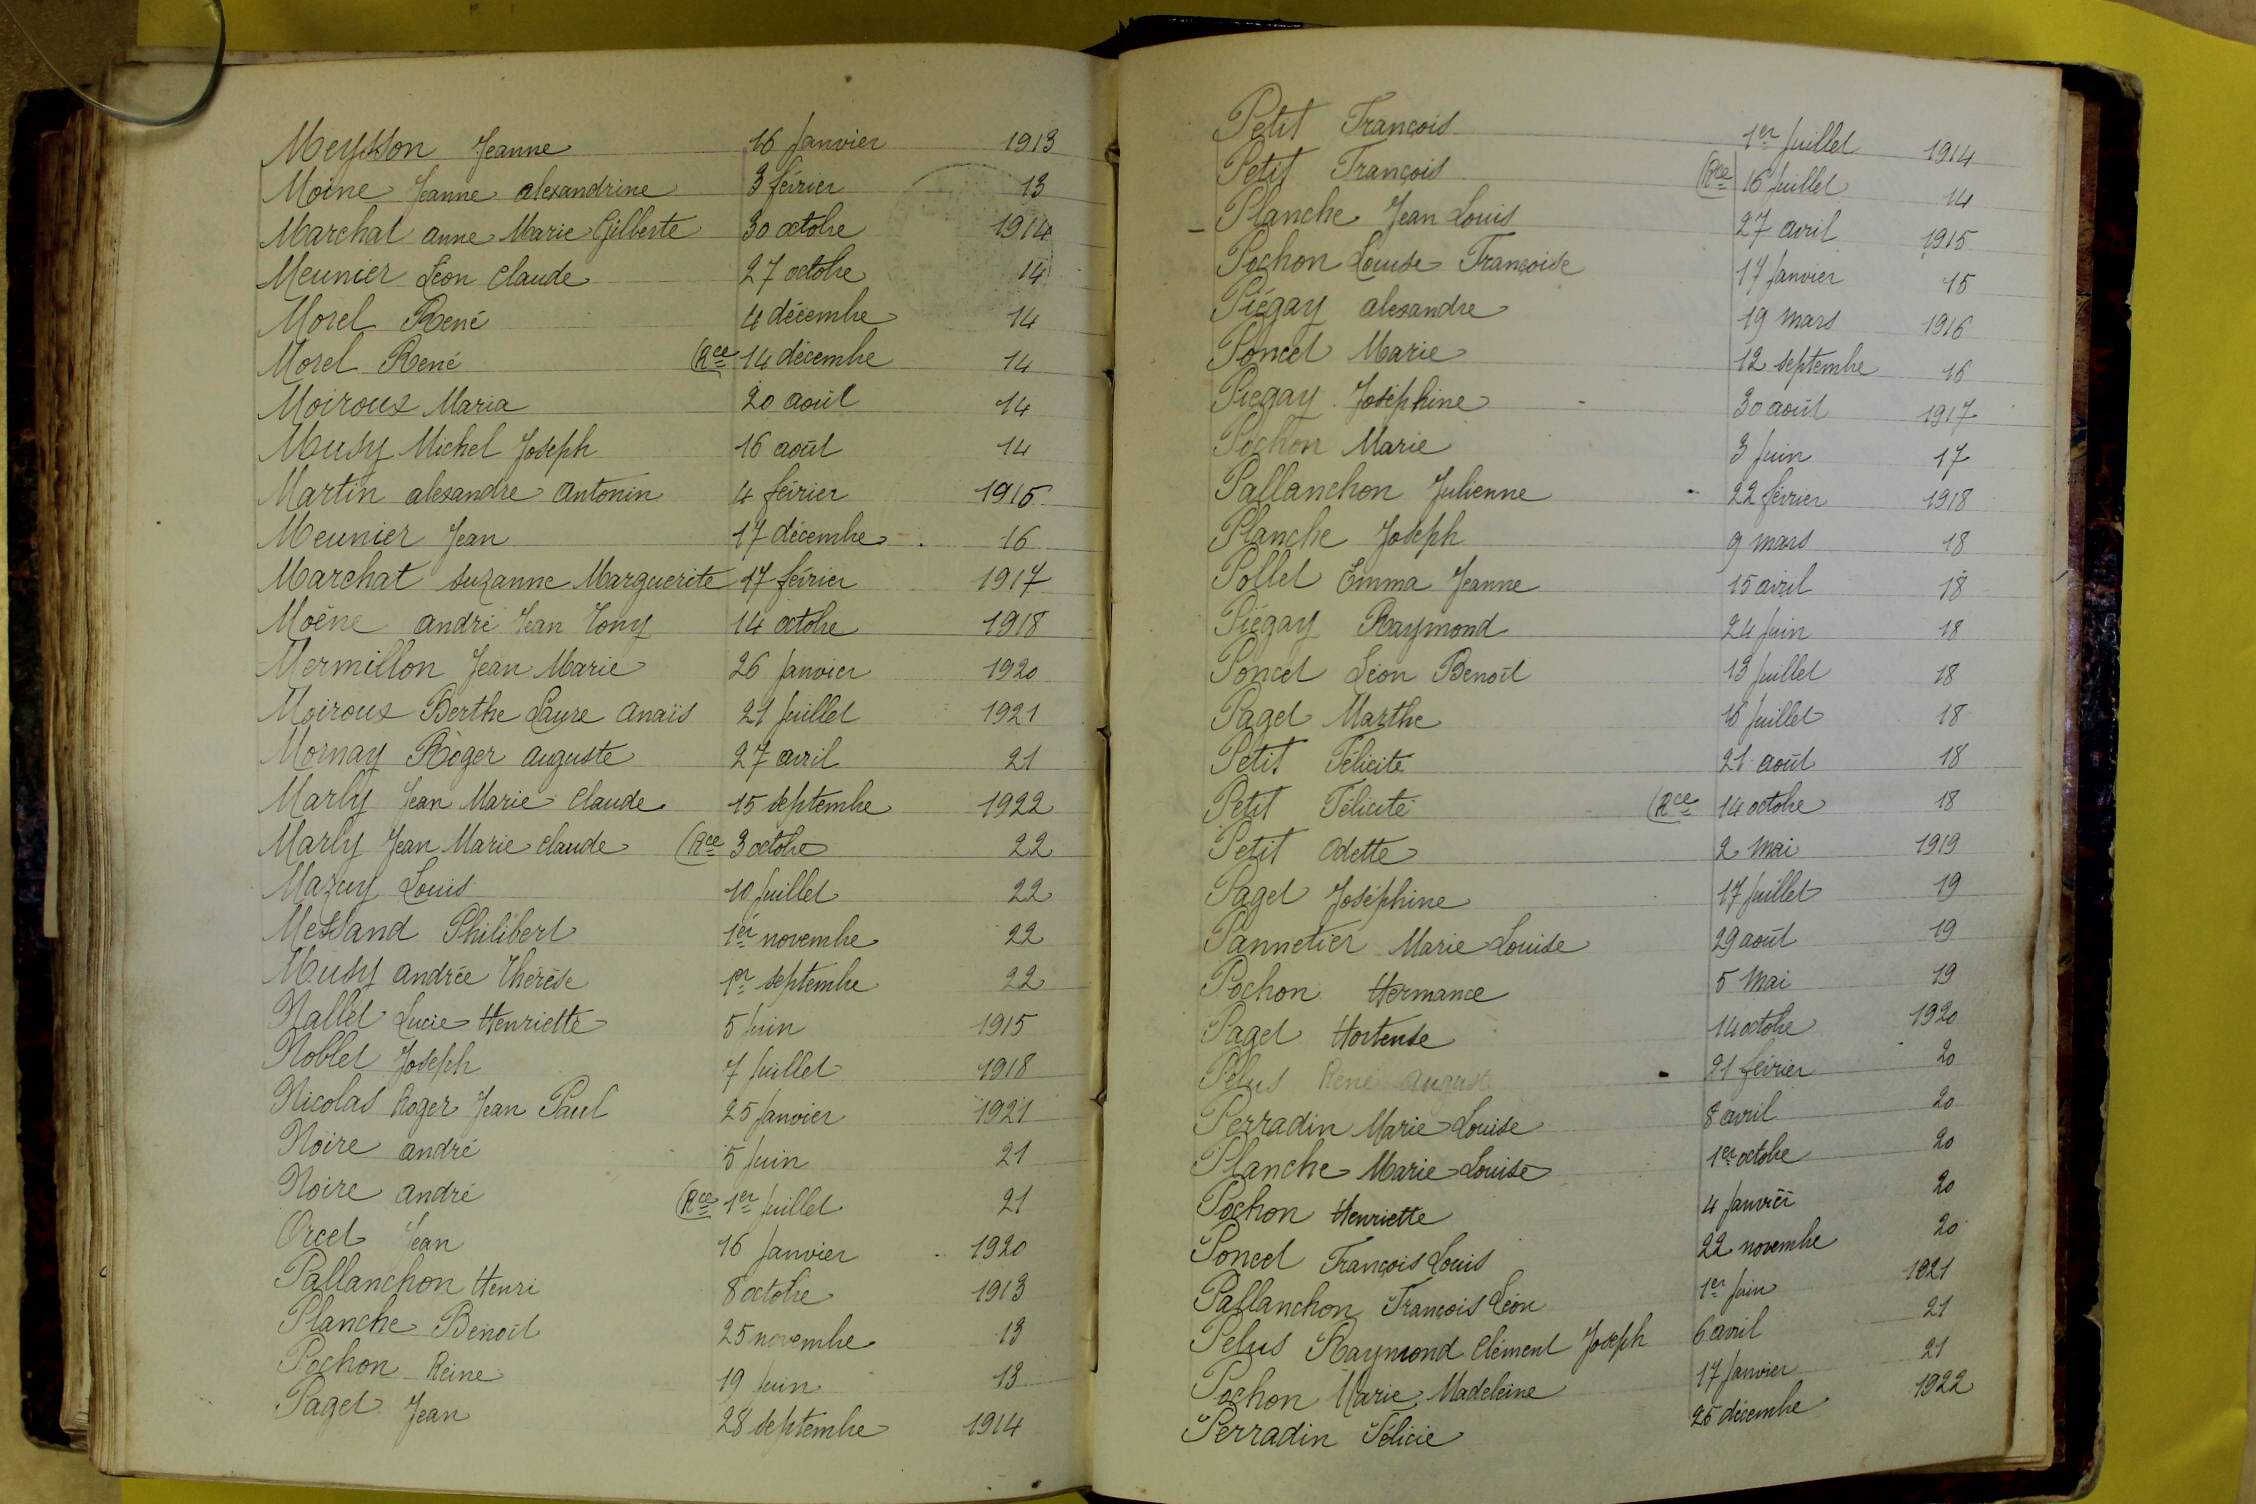 Meysson Jeanne 16 Janvier 1913
Moine Jeanne alexandrine 3 février 13
Marchat anne Marie Gilberte 30 octobre 1914
Meunier Léon claude 27 octobre 14
Morel René 4 décembre 14
Morel René (Rce 14 décembre 14
Moiroux Maria 20 août 14
Musy Michel Joseph 16 août 14
Martin alexandre antonin 4 février 1915
Meunier Jean 17 décembre 16
Marchat suzanne Marguerite 17 février 1917
Moëne andré Jean Tony 14 octobre 1918
Mermillon Jean Marie 26 Janvier 1920
Moiroux Berthe Laure anaïs 21 Juillet 1921
Mornay Roger auguste 27 avril 21
Marly Jean Marie claude 15 septembre 1922
Marly Jean Marie claude (Rce 3 octobre 22
Mazuy Louis 10 Juillet 22
Messand Philibert 1er novembre 22
Musy andrée Thérèse 1er septembre 22
Nallet Lucie Henriette 5 Juin 1915
Noblet Joseph 7 Juillet 1918
Nicolas Roger Jean Paul 25 Janvier 1921
Noire andré 5 Juin 21
Noire andré (Rce 1er Juillet 21
Orcet Jean 16 Janvier 1920
Pallanchon Henri 8 octobre 1913
Planche Benoit 25 novembre 13
Pochon Reine 19 Juin 13
Paget Jean 28 septembre 1914
Petit François 1er Juillet 1914
Petit François (Rce 16 Juillet 14
Planche Jean Louis 27 avril 1915
Pochon Louise Françoise 17 Janvier 15
Piégay alexandre 19 mars 1916
Poncet Marie 12 septembre 16
Piégay Joséphine 30 août 1917
Pochon Marie 3 Juin 17
Pallanchon Julienne 22 février 1918
Planche Joseph 9 mars 18
Pollet Emma Jeanne 15 avril 18
Piégay Raymond 24 Juin 18
Poncet Léon Benoît 13 Juillet 18
Paget Marthe 16 Juillet 18
Petit Félicité 21 août 18
Petit Félicité (Rce 14 octobre 18
Petit Odette 2 Mai 1919
Paget Joséphine 17 Juillet 19
Pannetier Marie Louise 29 août 19
Pochon Hermance 5 Mai 19
Paget Hortense 14 octobre 1920
Pelus René auguste 21 février 20
Perradin Marie Louise 8 avril 20
Planche Marie Louise 1er octobre 20
Pochon Henriette 4 Janvier 20
Poncet François Louis 22 novembre 20
Pallanchon François Léon 1er Juin 1921
Pelus Raymond Clément Joseph 6 avril 21
Pochon Marie Madeleine 17 Janvier 21
Perradin Félicie 25 décembre 1922